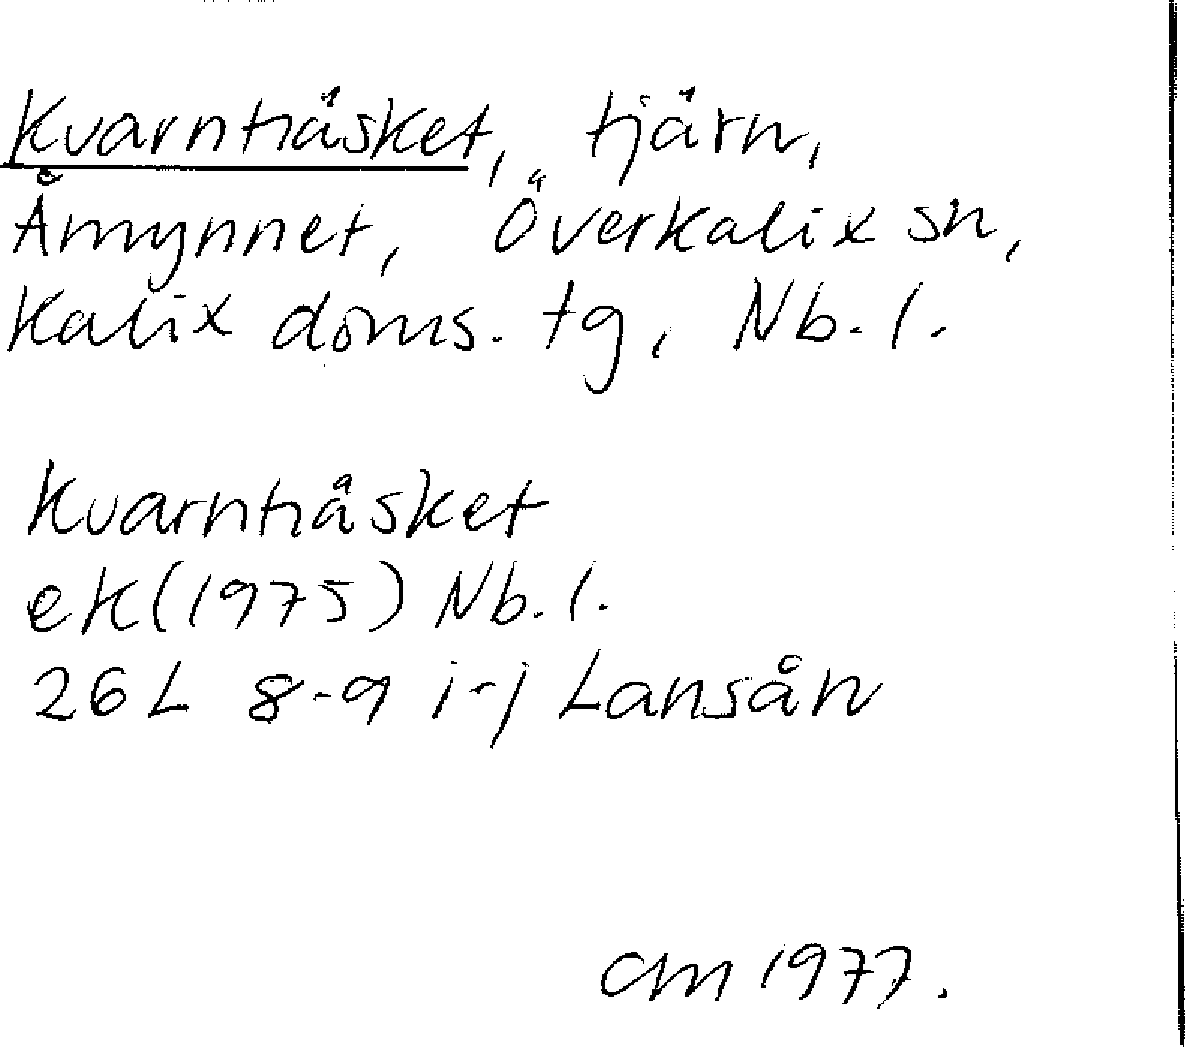 Kvarnträsket, tjärn,
Åmynnet, Överkalix sn,
Kalix doms. tg, Nb. l.
Kvarnträsket
ek (1975) Nb. l.
26 L 8-9 i-j Lansån
CM 1977.